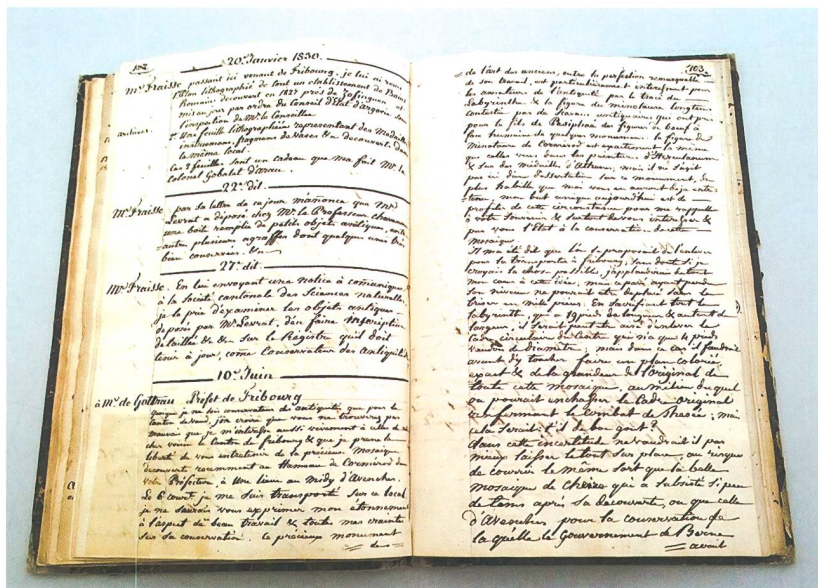 102
20.e Janvier 1830.
Mr. Fraisse passant ici venant de Fribourg, je lui ai remis
1 Plan lithographié de tout un etablissement de Bains
Romains decouvert en 1827 près de Zofinguen
mis au jour par ordre du Conseil d'Etat d'argovie sous
l'inspection de Mr. le Conseiller
Une feuille lithographiée representant des Medailles
instrumens, fragmens de vases &a decouverts dans
le même local.
Ces 2 feuilles sont un cadeau que m'a fait Mr. le
Colonel Gobalet d'arau.
22.e dit.
Mr. Fraisse par sa lettre de ce jour m'anonce que Mr.
Levrat a déposé chez Mr. le Professeur Chavannes
une boite remplie de petits objets antiques, entre
autre plusieurs agraffes dont quelques unes très
bien conservées. &a
27.e dit.
Mr. Fraisse. En lui envoyant une notice à comuniquer
à la Société cantonale des Sciences naturelles,
je le prie d'examiner les objets antiques
deposés par Mr. Levrat, d'en faire inscription
detaillée &a &a sur le Registre qu'il doit
tenir à jour, come Conservateur des antiquités
10.e Juin
à Mr. de Gottrau Préfet de Fribourg
quoique je ne sois conservateur des antiquités que pour le
Canton de Vaud, j'ose croire que vous ne trouverez pas
mauvais que je m'interesse aussi vivement à celles de
cher voisin le Canton de fribourg & que je prenne la
liberté de vous entretenir de la precieuse Mosaique
decouverte récemment au Hameau de Cormérod dans
votre Préfecture, à Une lieue au Midy d'avenches.
Le 6 court. je me suis transporté sur ce local
je ne saurais vous exprimer mon etonnement
à l'aspect du beau travail & toutes mes craintes
sur sa conservation. Ce précieux monument
de
103
de l'art des anciens, outre la perfection remarquable
de son travail, est particulièrement interessant pour
les amateurs de l'antiquité par le tracé du
Labyrinthe & la figure du minotaure longtems
contestée par de savans antiquaires, qui ont pris
pour le fils de Pasiphaé des figures de boeuf à
face humaine de quelques monumens: la figure du
Minotaure de Cormérod est exactement la même
que celles vues dans les peintures d'Herculanum
& sur des médailles d'athenes; mais il ne s'agit
pas ici d'une dissertation sur ce monument, de
plus habiles que moi vous en auront deja entre-
tenus, mon but unique aujourd'hui est de
profiter de cette circonstance pour me rappeller
à votre souvenir & surtout de vous interesser &
par vous l'Etat à la conservation de cette
mosaique.
Il m'a été dit que l'on se proposait de l'enlever
pour la transporter à fribourg, sans doute si je
croyais la chose possible j'applaudirais de tout
mon coeur à cette idée, mais ayant perdu
son niveau ne pourrait etre deplacé sans se
briser en mille pièces. En sacrifiant tout le
labyrinthe, qui a 19 pieds de longueur & autant de
largeur, il serait peut etre aisé d'enlever le
Cadre circulaire du Centre qui n'a que 4 pieds
vaudois de diamètre, mais dans ce cas il faudrait
avant d'y toucher faire un plan colorié
exact & de la grandeur de l'Original de
toute cette mosaique, au milieu duquel
on pourait enchasser le Cadre original
renfermant le Combat de Thesée; mais
cela serait-t'il de bon goût?
dans cette incertitude ne voudrait il pas
mieux laisser le tout sur place, au risque
de couvrir le même sort que la belle
mosaique de cheire qui a subsisté si peu
de tems après sa decouverte, ou que celle
d'Avenches pour la conservation de
laquelle le Gouvernement de Berne
avait